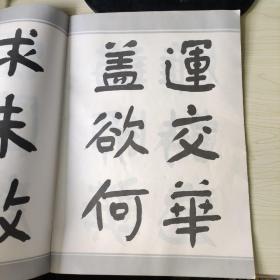 運交華
盖欲何
求未敢